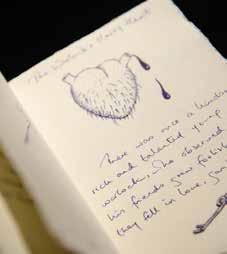 The Warlock's Hairy Heart
There was once a handsome
rich and talented young
warlock, who observed
his friends grew foolish
they fell in love, gam